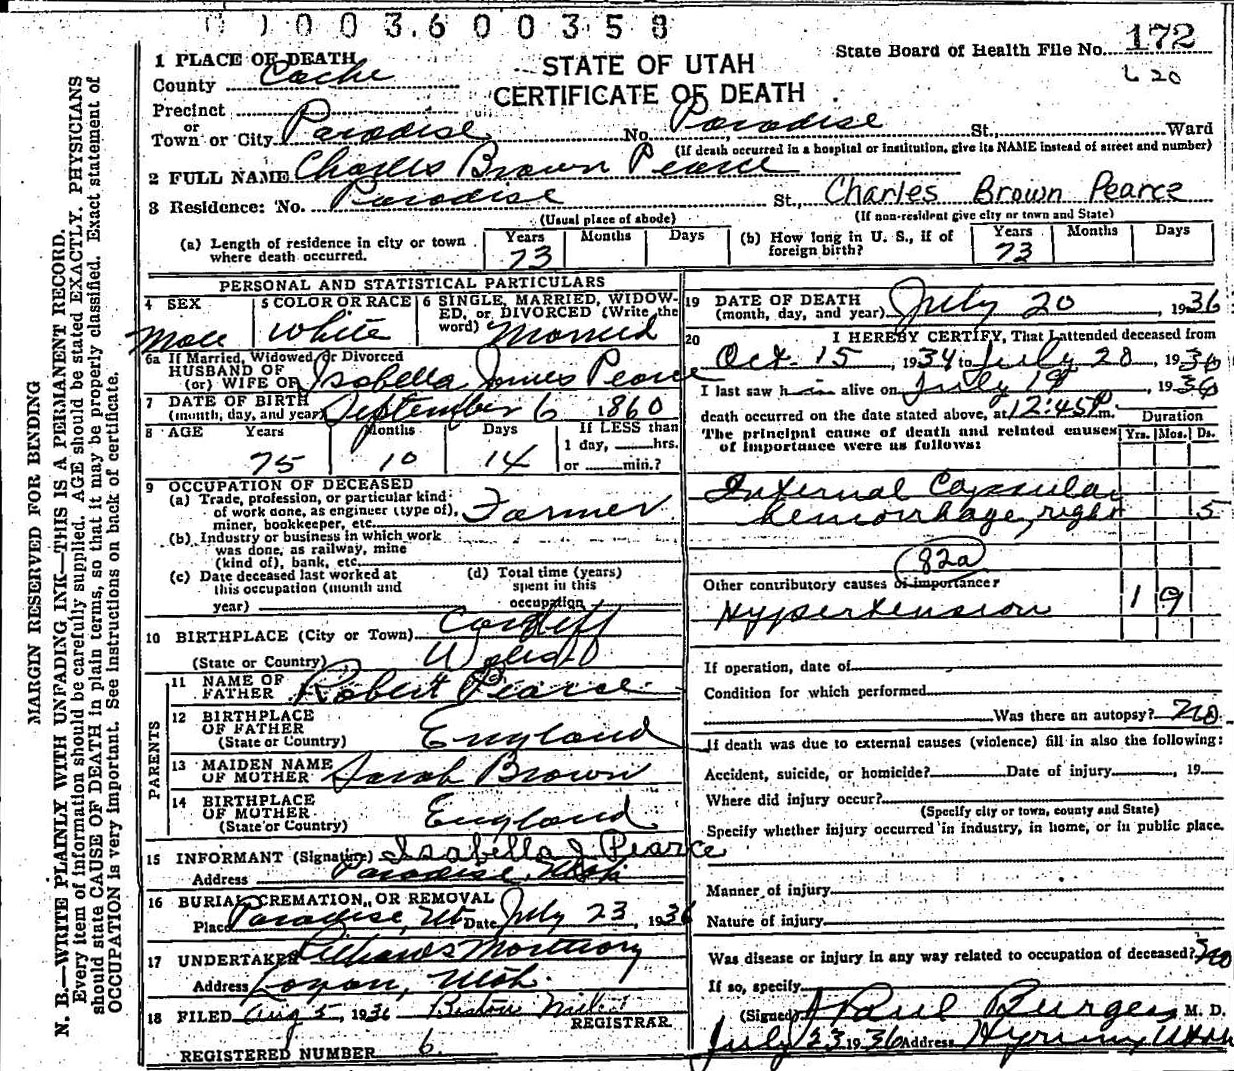 003600358
State Board of Health File No. 172
620
STATE OF UTAH
CERTIFICATE OF DEATH
1 PLACE OF DEATH
County Cache
Precinct
or
Town or City Paradise No. Paradise St., Ward
(If death occurred in a hospital or institution, give its NAME instead of street and number)
2 FULL NAME Charles Brown Pearce
3 Residence: No. Paradise St., Charles Brown Pearce
(Usual place of abode) (If non-resident give city or town and State)
(a) Length of residence in city or town where death occurred. Years 73 Months Days
(b) How long in U. S., if of foreign birth? Years 73 Months Days
PERSONAL AND STATISTICAL PARTICULARS
4 SEX Male
5 COLOR OR RACE White
6 SINGLE, MARRIED, WIDOW-
ED, or DIVORCED (Write the
word) Married
6a If Married, Widowed or Divorced
HUSBAND OF
(or) WIFE OF Isabella James Pearce
7 DATE OF BIRTH
(month, day, and year) September 6 1860
8 AGE Years 75 Months 10 Days 14 If LESS than
1 day, hrs.
or min.?
9 OCCUPATION OF DECEASED
(a) Trade, profession, or particular kind
of work done, as engineer (type of),
miner, bookkeeper, etc. Farmer
(b) Industry or business in which work
was done, as railway, mine
(kind of), bank, etc.
(c) Date deceased last worked at
this occupation (month and
year)
(d) Total time (years)
spent in this
occupation
10 BIRTHPLACE (City or Town) Cardiff
(State or Country)
PARENTS
11 NAME OF
FATHER Robert Pearce
12 BIRTHPLACE
OF FATHER
(State or Country) England
13 MAIDEN NAME
OF MOTHER Sarah Brown
14 BIRTHPLACE
OF MOTHER
(State or Country) England
15 INFORMANT (Signature) Isabella J Pearce
Address Paradise, Utah
16 BURIAL, CREMATION, OR REMOVAL
Place Paradise, Ut Date July 23, 1936
17 UNDERTAKER Mortuary
Address Logan, Utah
18 FILED Aug 5, 1936
REGISTRAR.
REGISTERED NUMBER 6.
19 DATE OF DEATH
(month, day, and year) July 20, 1936
20 I HEREBY CERTIFY, That I attended deceased from
Oct. 15, 1934 to July 20, 1936
I last saw him alive on July 19, 1936
death occurred on the date stated above, at 12:45 P. m.
The principal cause of death and related causes
of importance were as follows:
Duration
Yrs. Mos. Ds.
Internal Capsular
hemorrhage, right 5
82a
Other contributory causes of importance:
Hypertension 1 9
If operation, date of
Condition for which performed
Was there an autopsy? no
If death was due to external causes (violence) fill in also the following:
Accident, suicide, or homicide? Date of injury , 19
Where did injury occur?
(Specify city or town, county and State)
Specify whether injury occurred in industry, in home, or in public place.
Manner of injury
Nature of injury
Was disease or injury in any way related to occupation of deceased? no
If so, specify
(Signed) J Paul Burgess M. D.
July 23 1936 Address Hyrum, Utah
MARGIN RESERVED FOR BINDING
N. B.—WRITE PLAINLY WITH UNFADING INK—THIS IS A PERMANENT RECORD.
Every item of information should be carefully supplied. AGE should be stated EXACTLY. PHYSICIANS
should state CAUSE OF DEATH in plain terms, so that it may be properly classified. Exact statement of
OCCUPATION is very important. See instructions on back of certificate.